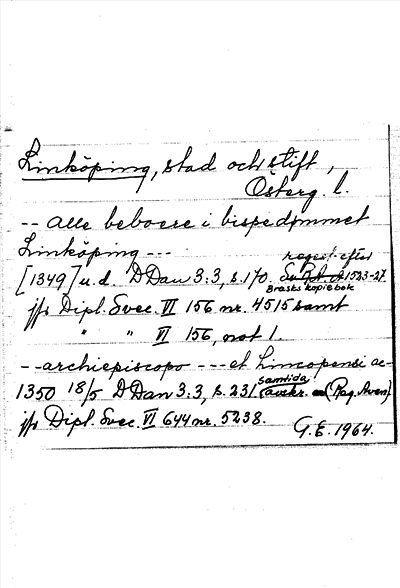 Linköping, stad och stift,
Österg. l.
-- alle beboere i bispedømmet
Linköping ---
[1349] u.d. D Dan 3:3, s. 170. regest efter
Brasks kopiebok 1523-27
jfr Dipl. Svec. VI 156 nr. 4515 samt
" " VI 156, not 1.
-- archiepiscopo --- et Lincopensi ac-
1350 18/5 D Dan 3:3, s. 231 samtida
avskr. (Reg. Aven)
jfr Dipl. Svec. VI 644 nr. 5238.
G.E. 1964.